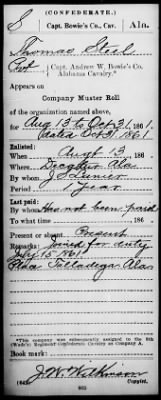 (CONFEDERATE.)
S Capt. Bowie's Co., Cav. Ala.
Thomas Steel
Pvt, Capt. Andrew W. Bowie's Co.,
Alabama Cavalry.*
Appears on
Company Muster Roll
of the organization named above,
for Aug 13 to Oct 31, 1861.
dated Oct 31, 1861
Enlisted:
When Aug 13, 186
Where Ala
By whom
Period 1 year
Last paid:
By whom Has not been paid
To what time , 186
Present or absent Present
Remarks: Joined for duty
15 1861
Place Talladega Ala
*This company was subsequently assigned to the 8th
(Wade's) Regiment Confederate Cavalry as Company
Book mark:
J. W. Wilkinson
(642) Copyist.